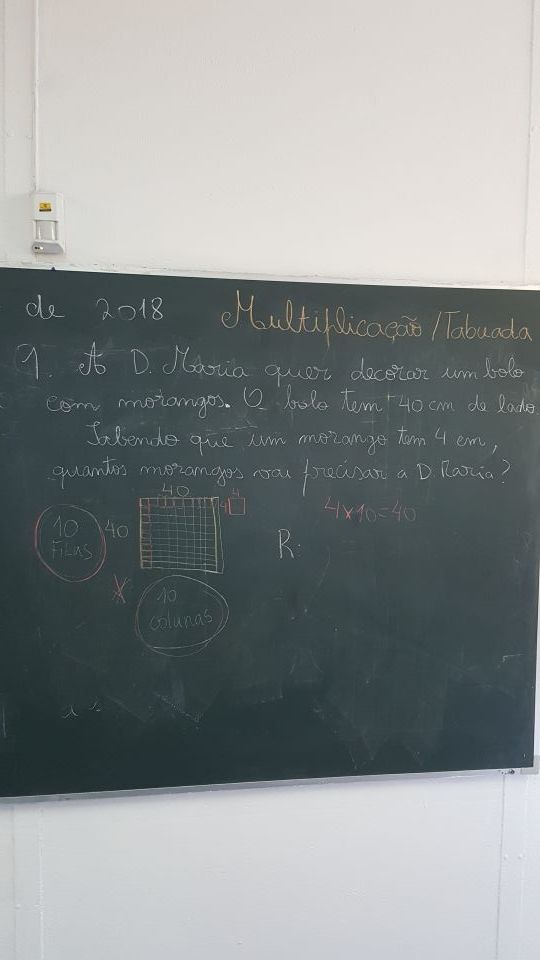 de 2018 Multiplicação/Tabuada
1. A D. Maria quer decorar um bolo
com morangos. O bolo tem 40 cm de lado.
Sabendo que um morango tem 4 cm,
quantos morangos vai precisar a D. Maria?
40 4
10 40 4 4x10=40
Filas
R:
x 10
colunas